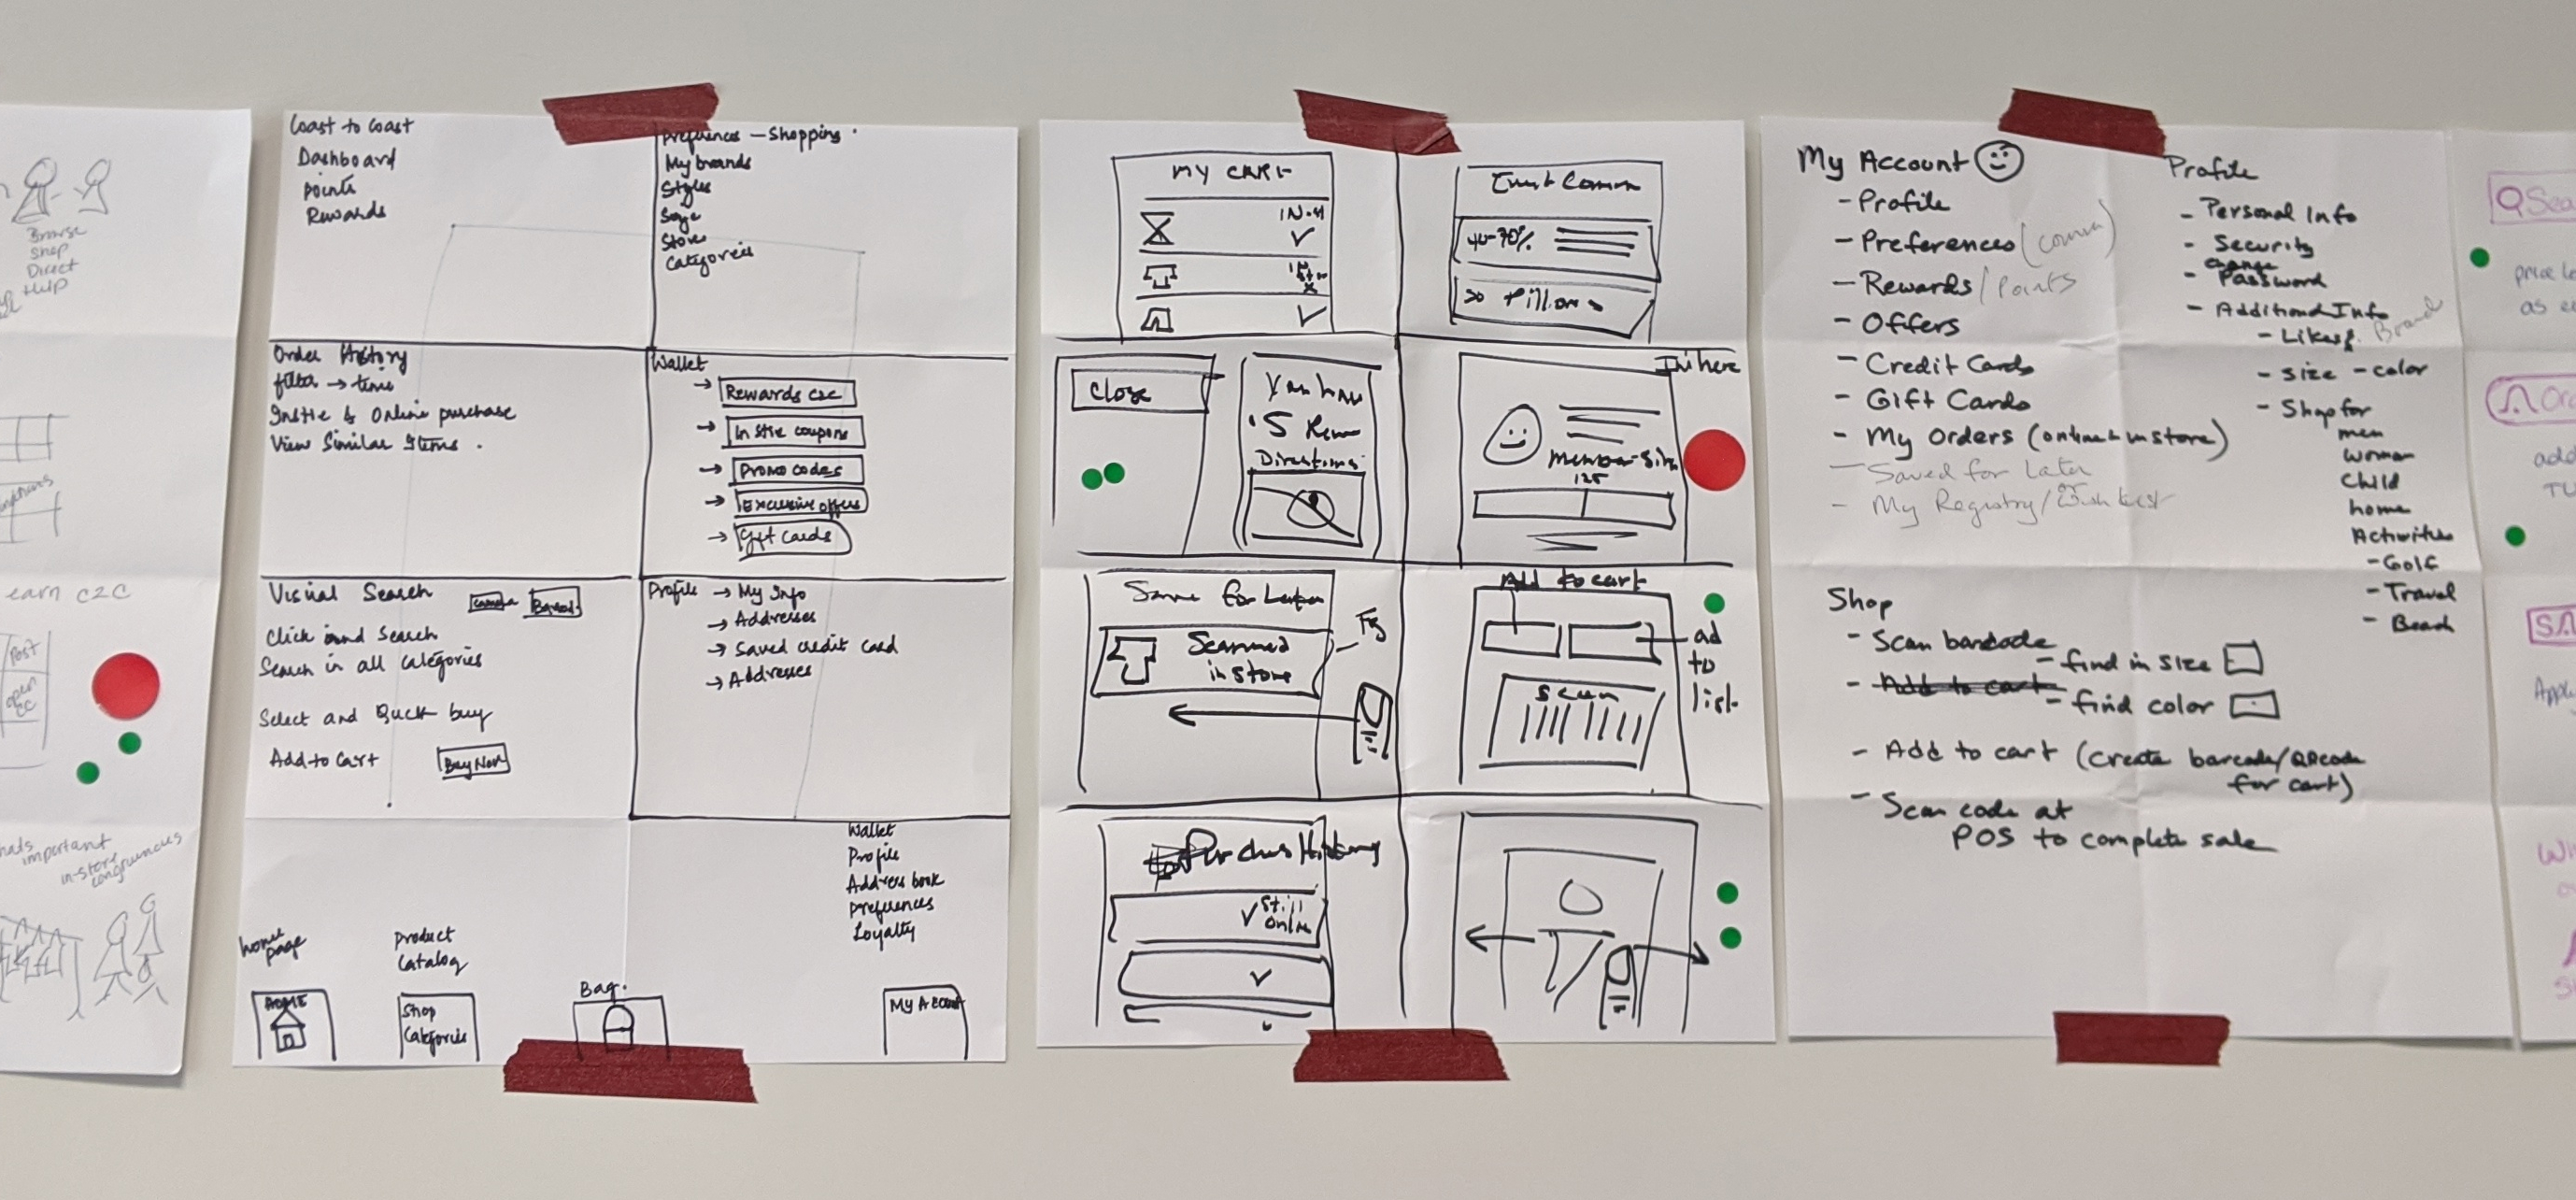 Browse
Shop
Direct
Help
earn C2C
Post
open
CC
important
in-store
congruencies
Coast to Coast
Dashboard
Points
Rewards
Preferences - Shopping
My brands
Styles
Size
Store
Categories
Order History
filter → time
Online purchase
View Similar Items .
Wallet
→ Rewards C2C
→ In store coupons
→ Promo codes
→ Exclusive offers
→ Gift Cards
Visual Search
Camera
Barcod.
Click and Search
Search in all Categories
Select and Quick buy
Add to Cart
Buy Now
Profile → My Info
→ Addresses
→ Saved credit card
→ Addresses
Wallet
Profile
Address book
Preferences
Loyalty
home page
Product
Catalog
HOME
Shop
Categories
Bag.
My Account
MY CART
40-70%
Close
You have
5
Directions
I'm here
125
Save for Later
Scanned
in store
Add to cart
ad
to
list
Scan
Still
Online
My Account
- Profile
- Preferences (comm)
- Rewards / Points
- Offers
- Credit Cards
- Gift Cards
- My Orders (online & in store)
- Saved for Later
- My Registry / or Wish List
Profile
- Personal Info
- Security
change
- Password
- Additional Info
- Likes Brand
- Size - color
- Shop for
men
Woman
Child
home
Activities
- Golf
- Travel
- Beach
Shop
- Scan barcode
- find in size
- Add to cart
- find color
- Add to cart (create barcode/QRcode
for cart)
- Scan code at
POS to complete sale
Sea
as
add